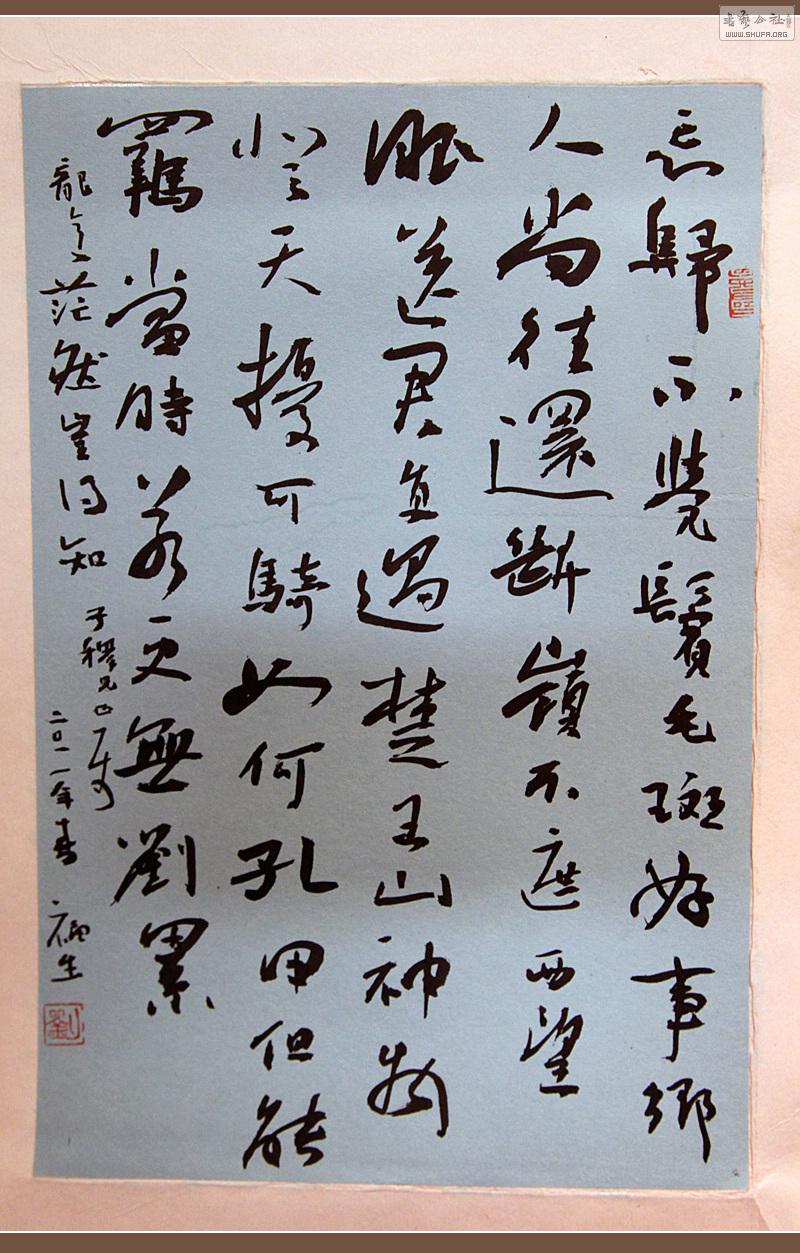 書藝公社
WWW.SHUFA.ORG
忘歸不覺鬢毛斑好事鄉
人尚往還斷嶺不遮西望
眼送君直過楚王山神物
登天擾可騎如何孔甲但能
羈當時若更無劉累
龍意茫然豈得知
子穆兄正
二〇一一年春 生
劉